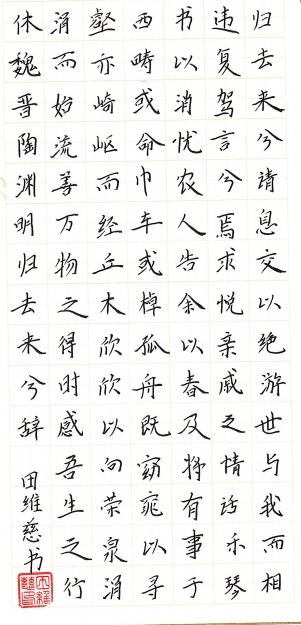 归去来兮请息交以绝游世与我而相
违复驾言兮焉求悦亲戚之情话乐琴
书以消忧农人告余以春及将有事于
西畴或命巾车或棹孤舟既窈窕以寻
壑亦崎岖而经丘木欣欣以向荣泉涓
涓而始流善万物之得时感吾生之行
休魏晋陶渊明归去来兮辞
田维慈书